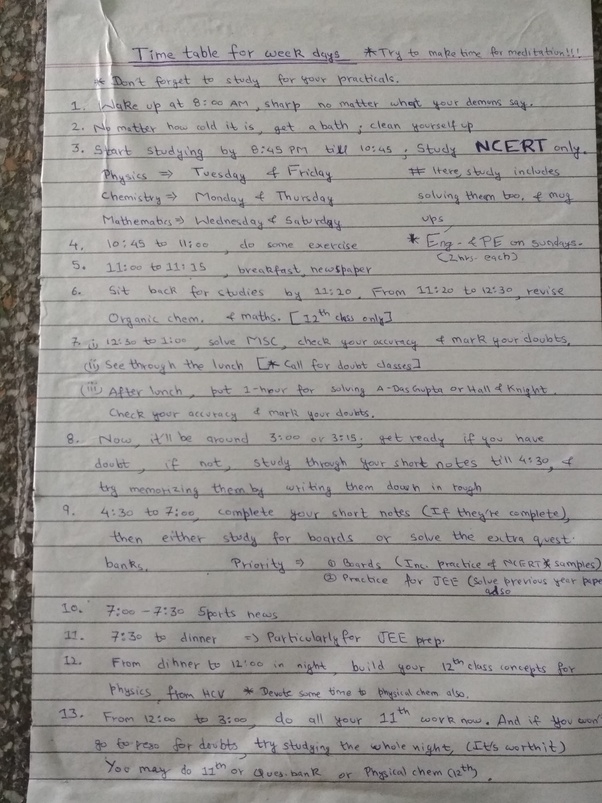 Time table for week days * Try to make time for meditation!!!
* Don't forget to study for your practicals.
1. Wake up at 8:00 AM, sharp no matter what your demons say.
2. No matter how cold it is, get a bath; clean yourself up
3. Start studying by 8:45 PM till 10:45; Study NCERT only.
Physics ⇒ Tuesday & Friday # Here, study includes
Chemistry ⇒ Monday & Thursday solving them too, & mug
Mathematics ⇒ Wednesday & Saturday ups
4. 10:45 to 11:00, do some exercise * Eng. & PE on sundays.
(2hrs. each)
5. 11:00 to 11:15, breakfast, newspaper
6. Sit back for studies by 11:20, From 11:20 to 12:30, revise
Organic chem. & maths. [12th class only]
7. i) 12:30 to 1:00, solve MSC, check your accuracy & mark your doubts,
(ii) See through the lunch [* Call for doubt classes]
(iii) After lunch, put 1-hour for solving A-DasGupta or Hall & Knight.
Check your accuracy & mark your doubts.
8. Now, it'll be around 3:00 or 3:15; get ready if you have
doubt, if not, study through your short notes till 4:30, &
try memorizing them by writing them down in rough
9. 4:30 to 7:00, complete your short notes (If they're complete),
then either study for boards or solve the extra quest.
banks. Priority ⇒ ① Boards (Inc. practice of NCERT & samples)
② Practice for JEE (Solve previous year pape
also
10. 7:00 - 7:30 Sports news
11. 7:30 to dinner ⇒ Particularly for JEE prep.
12. From dinner to 12:00 in night, build your 12th class concepts for
physics, from HCV * Devote some time to physical chem also.
13. From 12:00 to 3:00, do all your 11th work now. And if you won'
go to reso for doubts, try studying the whole night, (It's worth it)
You may do 11th or Ques. bank or Physical chem (12th).